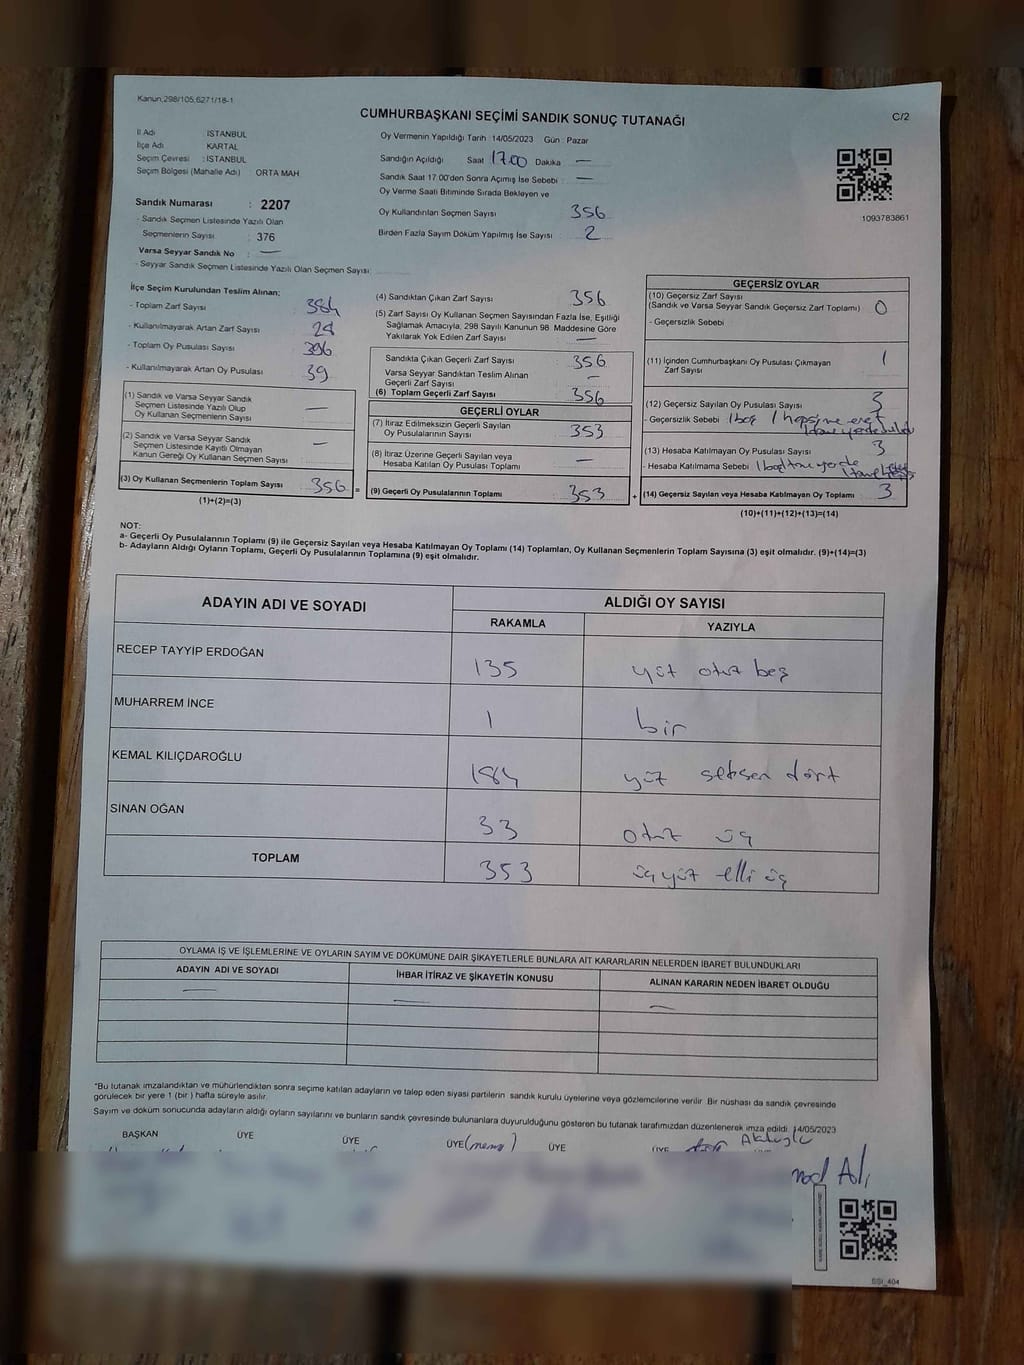 Kanun,298/105,6271/18-1
CUMHURBAŞKANI SEÇİMİ SANDIK SONUÇ TUTANAĞI
C/2
İl Adı İSTANBUL
İlçe Adı KARTAL
Seçim Çevresi : İSTANBUL
Seçim Bölgesi (Mahalle Adı) ORTA MAH
Sandık Numarası : 2207
- Sandık Seçmen Listesinde Yazılı Olan
Seçmenlerin Sayısı : 376
Varsa Seyyar Sandık No : —
- Seyyar Sandık Seçmen Listesinde Yazılı Olan Seçmen Sayısı:
Oy Vermenin Yapıldığı Tarih :14/05/2023 Gün : Pazar
Sandığın Açıldığı Saat 17.00 Dakika —
Sandık Saat 17.00'den Sonra Açılmış İse Sebebi : —
Oy Verme Saati Bitiminde Sırada Bekleyen ve
Oy Kullandırılan Seçmen Sayısı 356
Birden Fazla Sayım Döküm Yapılmış İse Sayısı 2
1093783861
İlçe Seçim Kurulundan Teslim Alınan;
- Toplam Zarf Sayısı 384
- Kullanılmayarak Artan Zarf Sayısı 28
- Toplam Oy Pusulası Sayısı 396
- Kullanılmayarak Artan Oy Pusulası 39
(1) Sandık ve Varsa Seyyar Sandık
Seçmen Listesinde Yazılı Olup
Oy Kullanan Seçmenlerin Sayısı —
(2) Sandık ve Varsa Seyyar Sandık
Seçmen Listesinde Kayıtlı Olmayan
Kanun Gereği Oy Kullanan Seçmen Sayısı —
(3) Oy Kullanan Seçmenlerin Toplam Sayısı 356 =
(1)+(2)=(3)
(4) Sandıktan Çıkan Zarf Sayısı 356
(5) Zarf Sayısı Oy Kullanan Seçmen Sayısından Fazla İse, Eşitliği
Sağlamak Amacıyla, 298 Sayılı Kanunun 98. Maddesine Göre
Yakılarak Yok Edilen Zarf Sayısı —
Sandıkta Çıkan Geçerli Zarf Sayısı 356
Varsa Seyyar Sandıktan Teslim Alınan
Geçerli Zarf Sayısı —
(6) Toplam Geçerli Zarf Sayısı 356
GEÇERLİ OYLAR
(7) İtiraz Edilmeksizin Geçerli Sayılan
Oy Pusulalarının Sayısı 353
(8) İtiraz Üzerine Geçerli Sayılan veya
Hesaba Katılan Oy Pusulası Toplamı —
(9) Geçerli Oy Pusulalarının Toplamı 353 +
GEÇERSİZ OYLAR
(10) Geçersiz Zarf Sayısı
(Sandık ve Varsa Seyyar Sandık Geçersiz Zarf Toplamı) 0
- Geçersizlik Sebebi
(11) İçinden Cumhurbaşkanı Oy Pusulası Çıkmayan
Zarf Sayısı 1
(12) Geçersiz Sayılan Oy Pusulası Sayısı 3
- Geçersizlik Sebebi 1 boş 1 hepsine evet
(13) Hesaba Katılmayan Oy Pusulası Sayısı 3
- Hesaba Katılmama Sebebi
(14) Geçersiz Sayılan veya Hesaba Katılmayan Oy Toplamı 3
(10)+(11)+(12)+(13)=(14)
NOT:
a- Geçerli Oy Pusulalarının Toplamı (9) ile Geçersiz Sayılan veya Hesaba Katılmayan Oy Toplamı (14) Toplamları, Oy Kullanan Seçmenlerin Toplam Sayısına (3) eşit olmalıdır. (9)+(14)=(3)
b- Adayların Aldığı Oyların Toplamı, Geçerli Oy Pusulalarının Toplamına (9) eşit olmalıdır.
ADAYIN ADI VE SOYADI ALDIĞI OY SAYISI
RAKAMLA YAZIYLA
RECEP TAYYİP ERDOĞAN 135 yüz otuz beş
MUHARREM İNCE 1 bir
KEMAL KILIÇDAROĞLU 184 yüz seksen dört
SİNAN OĞAN 33 otuz üç
TOPLAM 353 üç yüz elli üç
OYLAMA İŞ VE İŞLEMLERİNE VE OYLARIN SAYIM VE DÖKÜMÜNE DAİR ŞİKAYETLERLE BUNLARA AİT KARARLARIN NELERDEN İBARET BULUNDUKLARI
ADAYIN ADI VE SOYADI İHBAR İTİRAZ VE ŞİKAYETİN KONUSU ALINAN KARARIN NEDEN İBARET OLDUĞU
— — —
*Bu tutanak imzalandıktan ve mühürlendikten sonra seçime katılan adayların ve talep eden siyasi partilerin sandık kurulu üyelerine veya gözlemcilerine verilir. Bir nüshası da sandık çevresinde
görülecek bir yere 1 (bir ) hafta süreyle asılır.
Sayım ve döküm sonucunda adayların aldığı oyların sayılarını ve bunların sandık çevresinde bulunanlara duyurulduğunu gösteren bu tutanak tarafımızdan düzenlenerek imza edildi. 14/05/2023
BAŞKAN ÜYE ÜYE ÜYE ÜYE ÜYE
SSİ_404